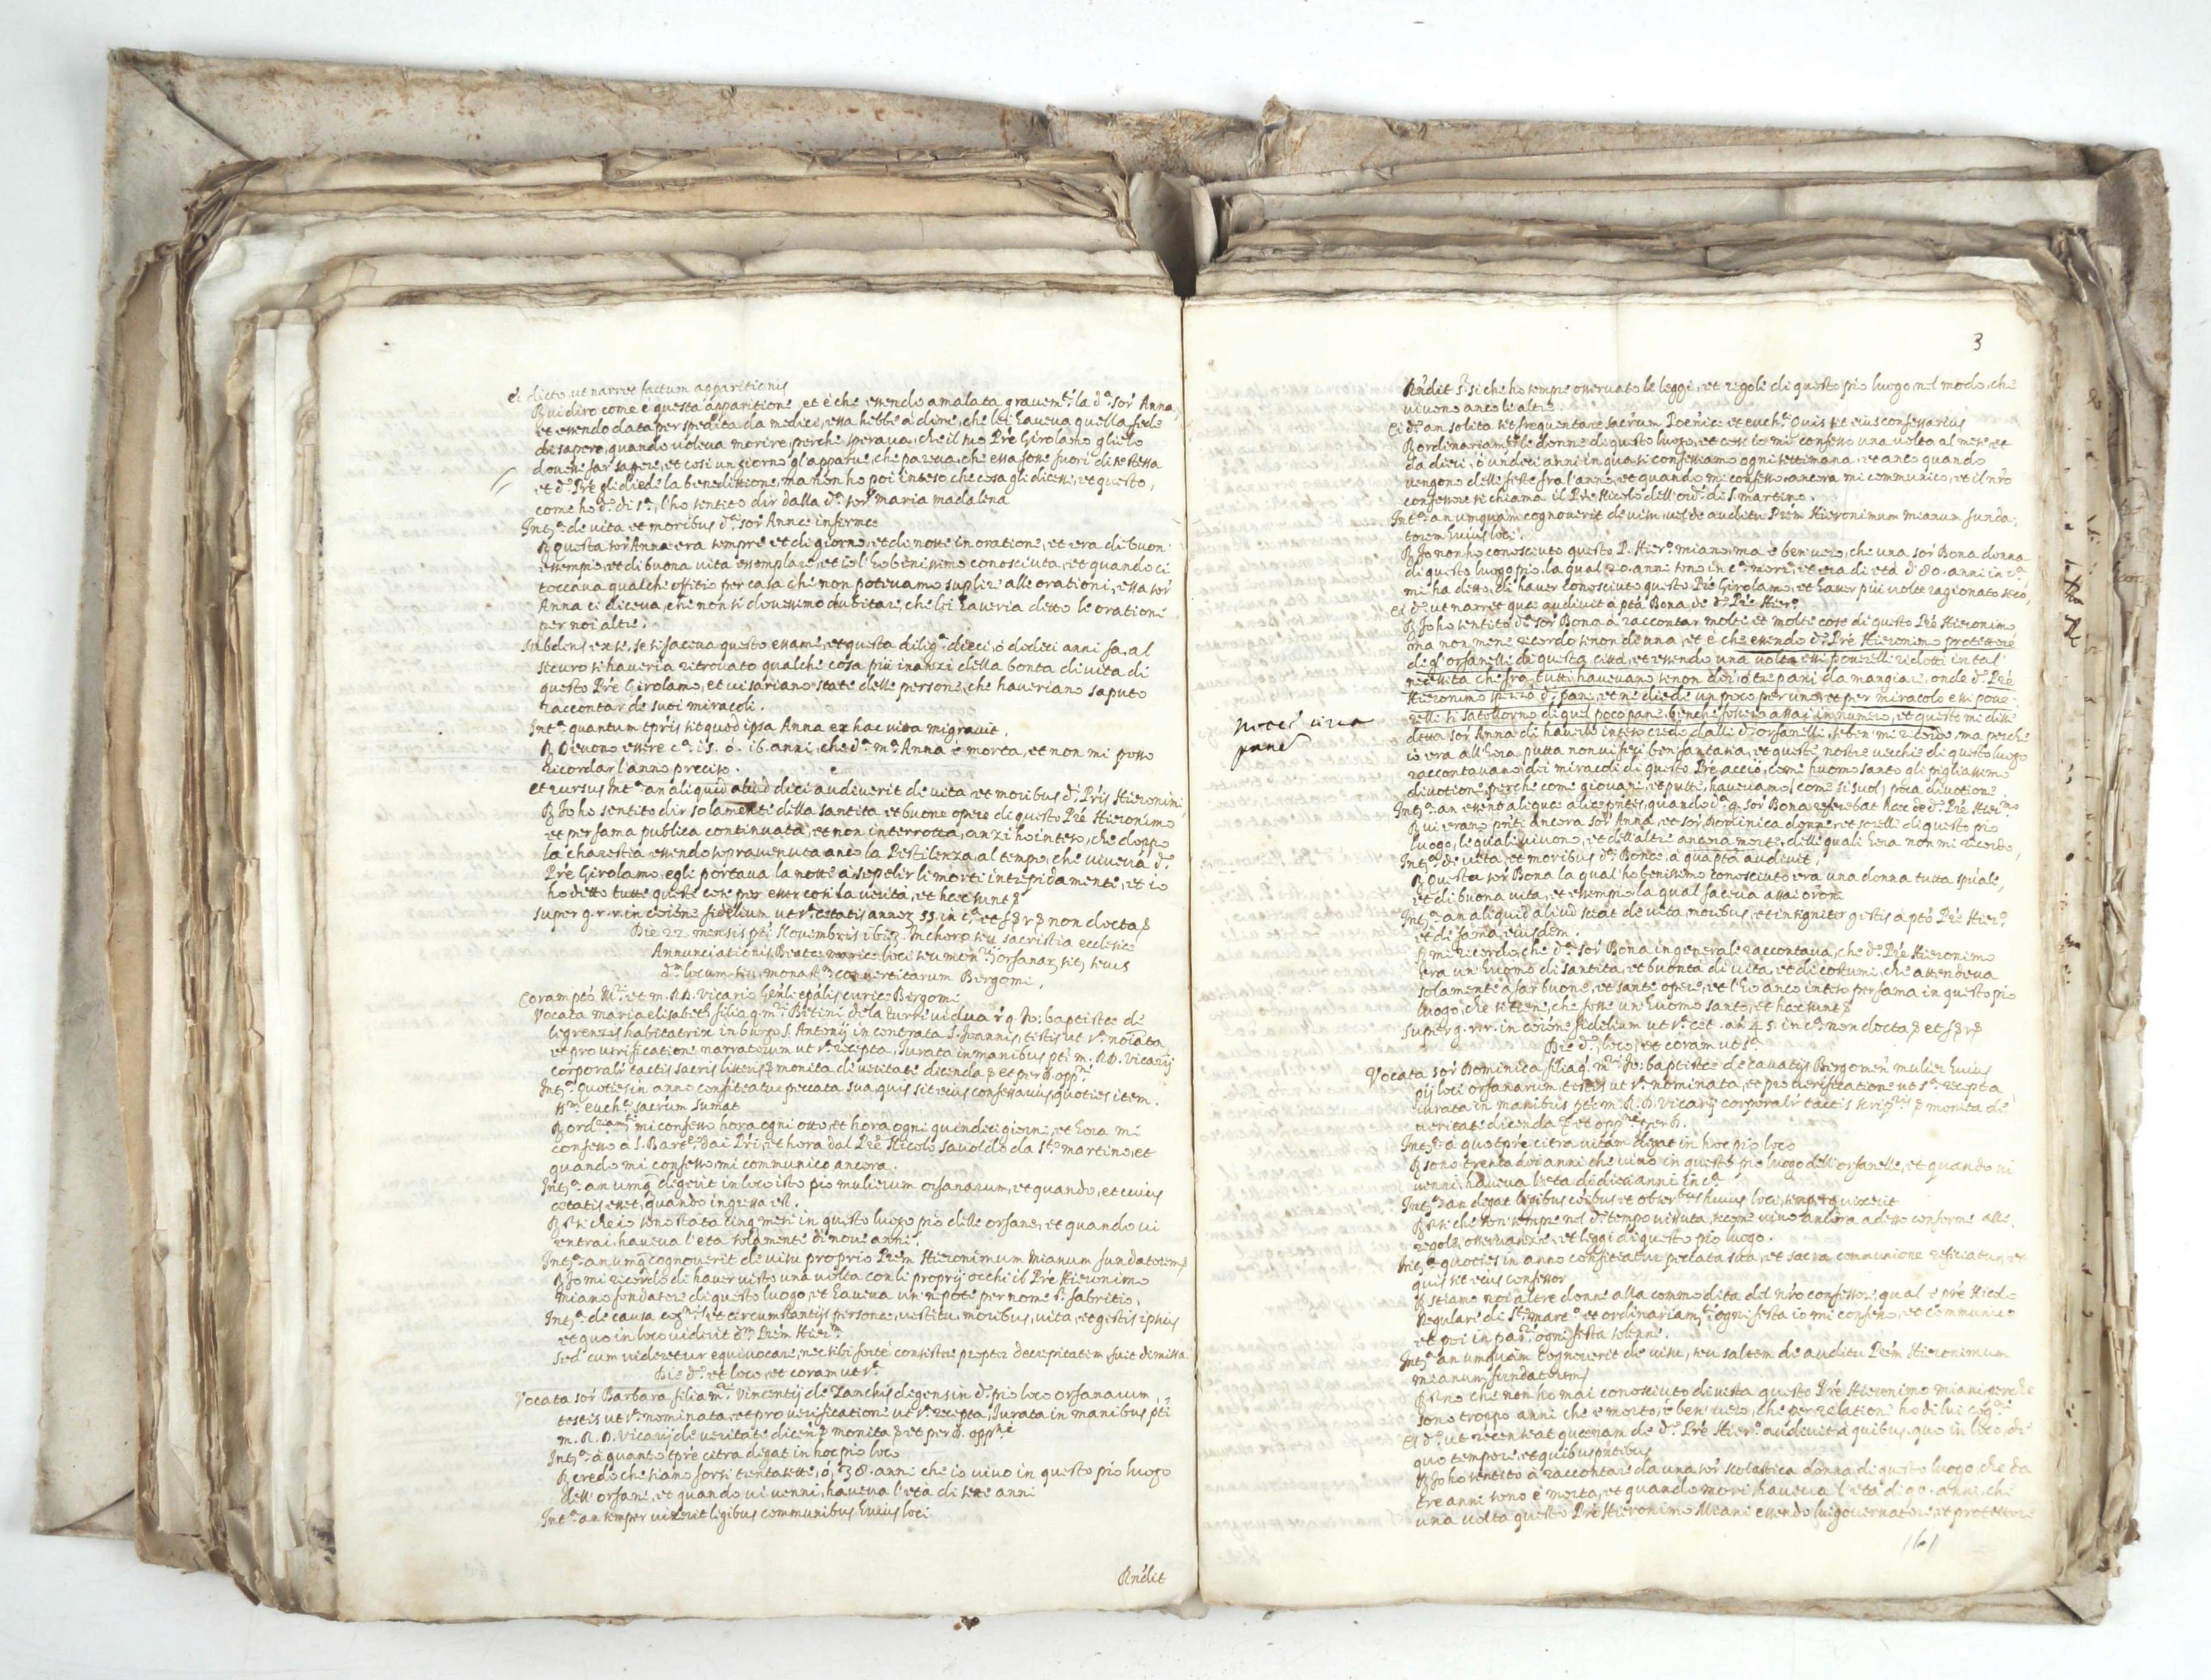 Ei dicto ut narret factum apparitionis
R Vi dirò come è questa apparitione, et è che essendo amalata gravem.te la d.a sor Anna,
et essendo data per spedita da medici, essa hebbe à dire, che lei haveva quella fede
di sapere, quando voleva morire, perche sperava, che il suo Pre Girolamo glielo
dovesse far sapere, et così un giorno gl'apparve, che pareva, che essa fosse fuori di se stessa
et d.o Pre gli diede la benedittione, ma non ho poi inteso che cosa gli dicesse, et questo,
come ho d.o di s.a, l'ho sentito dir dalla d.a sor Maria Madalena
Int.a de vita et moribus d.ae sor Annae infirmae
R Questa sor Anna era sempre et di giorno, et di notte in oratione, et era di buon
essempio, et di buona vita essemplare, et io l'ho benissimo conosciuta, et quando ci
toccava qualche offitio per casa che non potevamo suplire alle orationi, essa sor
Anna ci diceva, che non si dovessimo dubitare, che lei haveria detto le orationi
per noi altre.
Subdens ex se, se si faceva questo essame, et questa dilig.a dieci, ò dodeci anni fa, al
sicuro si haveria ritrovato qualche cosa più inanzi della bontà di vita di
questo Pre Girolamo, et vi sariano state delle persone, che haveriano saputo
raccontar de suoi miracoli.
Int.a quantum tpris sit quod ipsa Anna ex hac vita migravit.
R Devono essere c.a 15. ò. 16. anni, che d.a m.a Anna è morta, et non mi posso
ricordar l'anno preciso.
Et rursus Int.a an aliquid aliud dici audiverit de vita et moribus d.i Pris Hieronimi
R Io ho sentito dir solamente della santità et buone opere di questo Pre Hieronimo
et per fama publica continuata, et non interrotta, anzi ho inteso, che doppo
la charestia essendo sopravenuta anco la Pestilenza, al tempo, che viveva d.o
Pre Girolamo, egli portava la notte à sepelir li morti intrepidamente, et io
ho detto tutte queste cose per esser così la verità, et haec sunt
super g. r. r. in coione fidelium ut s.a etatis annor 55. in c.a et non docta
Die 22 mensis pti Novembris 1623. In choro seu sacristia ecclesiae
Annunciationis Beatae Mariae loci seu mon.rij orfanar
locum seu monast. convertitarum Bergomi.
Coram pto Ill.re et m. R.D. Vicario Gñli epalis curiae Bergomi
Vocata Maria Elisabeth filia q. m. Betini de la Turre vidua q. Jo: Baptistae de
Legrenzis habitatrix in burgo S. Antonij in contrata S. Joannis, testis ut s.a noiata
et pro verificatione narratorum ut s.a recepta, Iurata in manibus pti m. R.D. Vicarij
corporalr tactis sacris litteris monita de veritate dicenda et per R. opp.ne
Int.a Quoties in anno confiteatur peccata sua, quis sit eius confessarius, quoties item
ss.m euch.ae sacrum sumat
R ord.riam.te mi confesso hora ogni otto, et hora ogni quindeci giorni, et hora mi
confesso à S. Bart.o dai Pri, et hora dal Pre Nicolò Savoldo da S.to Martino, et
quando mi confesso, mi communico ancora.
Int.a an umq. degerit in loco isto pio mulierum orfanarum, et quando, et cuius
etatis esset, quando ingressa est.
R Sr si che io sono stata cinq. mesi in questo luogo pio delle orfane, et quando vi
entrai, haveva l'età solamente di nove anni.
Int.a an umq. cognoverit de visu proprio Prem Hieronimum Mianum fundatorem
R Io mi ricordo di haver visto una volta con li proprij occhi il Pre Hieronimo
Miano fondatore di questo luogo, et haveva un nepote per nome S.r Fabritio.
Int.a de causa cog.nis, et circumstantijs personae, vestitu, moribus, vita, et gestis ipsius
et quo in loco viderit d.m Prem Hier.m
Sed cum videretur equivocare, nec sibi forte consistere propter decrepitatem fuit dimissa.
Die d.o et loco, et coram ut s.a
Vocata sor Barbara filia m. Vincentij de Zanchis degens in d.o pio loco orfanarum,
testis ut s.a nominata, et pro verificatione ut s.a recepta, Iurata in manibus pti
m. R.D. Vicarij de veritate dicen. monita et per R. opp.ne
Int.a à quanto tpre citra degat in hoc pio loco
R credo che siano forsi trentasette, ò, 38. anni che io vivo in questo pio luogo
dell'orfane, et quando vi venni, haveva l'età di sette anni
Int.a an semper vixerit legibus communibus huius loci
Rndit
3
Rndit S.r si che ho sempre osservato le leggi, et regole di questo pio luogo, nel modo, che
vivono anco le altre.
Ei d.o an solita sit frequentare sacrum Poenit.ae et euch.ae Quis sit eius confessarius
R ordinariam.te le donne di questo luogo, et così io mi confesso una volta al mese, et
da dieci, ò undeci anni in qua si confessiamo ogni settimana, et anco quando
vengono delle feste fra l'anno, et quando mi confesso ancora mi communico, et il nro
confessore si chiama il Pre Nicolò dell'ord.e di S. Martino.
Int.a an umquam cognoverit de visu, vel de auditu Prem Hieronimum Mianum funda-
torem huius loci.
R Io non ho conosciuto questo P. Hier.o Miano, ma è ben vero, che una sor Bona donna
di questo luogo pio, la qual, 20. anni sono in c.a morì, et era di età d'80. anni in c.a
mi ha detto, di haver conosciuto questo Pre Girolamo, et haver più volte ragionato seco,
Ei d.o ut narret quae audivit à pta Bona de d.o Pre Hier.o
R Io ho sentito d.a sor Bona à raccontar molte et molte cose di questo Pre Hieronimo
ma non me ne ricordo se non de una, et è che essendo d.o Pre Hieronimo protettore
degl'orfanelli di questa città, et essendo una volta essi poverelli ridotti in tal
necessità che fra tutti havevano se non doi, ò tre pani da mangiare, onde d.o Pre
Hieronimo spezzò d.i pani, et ne diede un poco per uno, et per miracolo essi pove-
relli si satollorno di quel poco pane, benche fossero assai in numero, et questo mi disse
detta sor Anna di haverlo inteso credo dalli d.i orfanelli, se ben mi ricordo, ma perche
io era all'hora putta non vi feci ben fantasia, et queste nostre vecchie di questo luogo
raccontavano dei miracoli di questo Pre acciò, come huomo santo gli pigliassimo
divotione, perche come giovane, et putte, haveriamo (come si suol) poca divotione.
Int.a an essent aliquae aliae pntes, quando d.a q. sor Bona referebat haec de d.o Pre Hier.mo
R vi erano pnti ancora sor Anna, et sor Dominica donne, et sorelle di questo pio
luogo, le quali vivono, et dell'altre ancora morte, delle quali hora non mi ricordo.
Int.a de vita, et moribus d.ae Bonae, à qua pta audivit.
R Questa sor Bona la qual ho benissimo conosciuto era una donna tutta spuale,
et di buona vita, et essempio la qual faceva assai oroni
Int.a an aliquid aliud sciat de vita, moribus, et insigniter gestis à pto Pre Hier.o
et de fama eiusdem.
R mi ricordo, che d.a sor Bona in generale raccontava, che d.o Pre Hieronimo
era un huomo di santità, et buontà di vita, et di costumi, che attendeva
solamente à far buone, et sante opere, et l'ho anco inteso per fama in questo pio
luogo, che si tiene, che fosse un huomo santo, et haec sunt
super g. r. r. in coione fidelium ut s.a aet. an. 45. in c.a non docta
Die d.o, loco, et coram ut s.a
Vocata sor Dominica filia q. m. Jo: Baptistae de Cavatijs Bergomen mulier huius
pij loci orfanarum, testis ut s.a nominata, et pro verificatione ut s.a recepta
iurata in manibus pti m. R.D. Vicarij corporalr tactis scrip.ris monita de
veritate dicenda et opp.ne per R.
Int.a à quo tpre citra vitam degat in hoc pio loco
R sono trenta doi anni che vivo in questo pio luogo dell'orfanelle, et quando vi
venni, haveva l'età di dieci anni in c.a
Int.a an degat legibus coibus et obser.bus huius loci, semperq. vixerit
R Sr si che son sempre nel d.o tempo vissuta, si come vivo ancora adesso conforme alle
regole, osservanze, et leggi di questo pio luogo.
Int.a quoties in anno confiteatur peccata sua, et sacra communione reficiatur, et
quis sit eius confessor
R stiamo noi altre donne alla commodità del nro confessore, qual è pre Nicolò
Regulare di S.to Mart.o et ordinariam.te ogni festa io mi confesso, et communico
et poi in par.re ogni festa solenne.
Int.a an umquam cognoverit de visu, seu saltem de auditu Prem Hieronimum
Mianum fundatorem
R Sr no che non ho mai conosciuto di vista questo Pre Hieronimo Miani perche
sono troppo anni che è morto, è ben vero, che per relatione ho di lui cog.ne
Ei d.o ut recenseat quaenam de d.o Pre Hier.o audivit à quibus, quo in loco, de
quo tempore, et quibus pntibus
R Io ho sentito à raccontare da una sor Scolastica donna di questo luogo, che da
tre anni sono è morta, et quando morì haveva l'età di 90. anni, che
una volta questo Pre Hieronimo Miani essendo lui governatore, et protettore
161